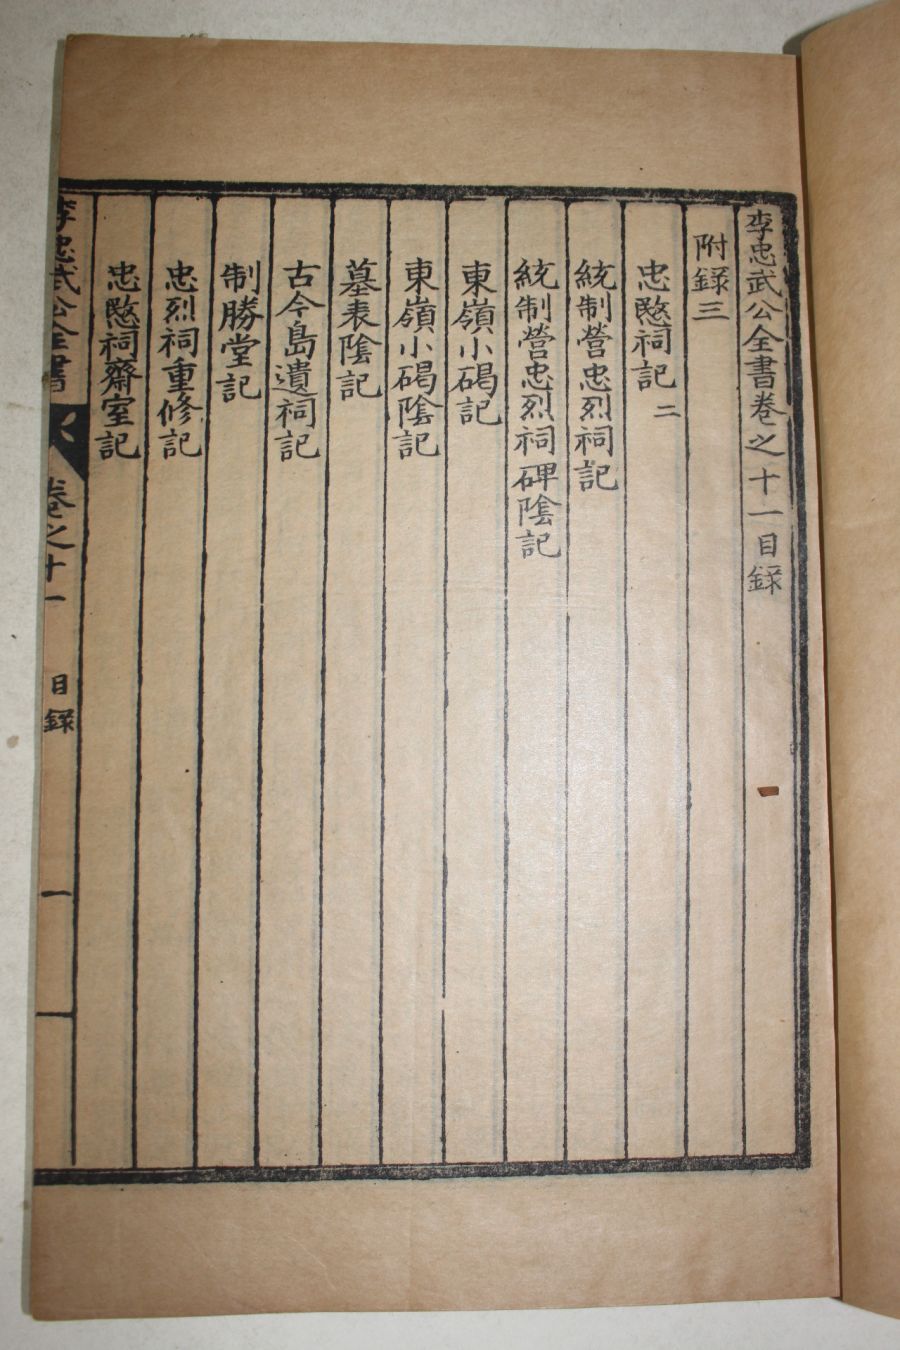 李忠武公全書卷之十一目録
附録三
忠愍祠記 二
統制營忠烈祠記
統制營忠烈祠碑陰記
東嶺小碣記
東嶺小碣陰記
墓表陰記
古今島遺祠記
制勝堂記
忠烈祠重修記
忠愍祠齋室記
李忠武公全書 卷之十一 目録 一